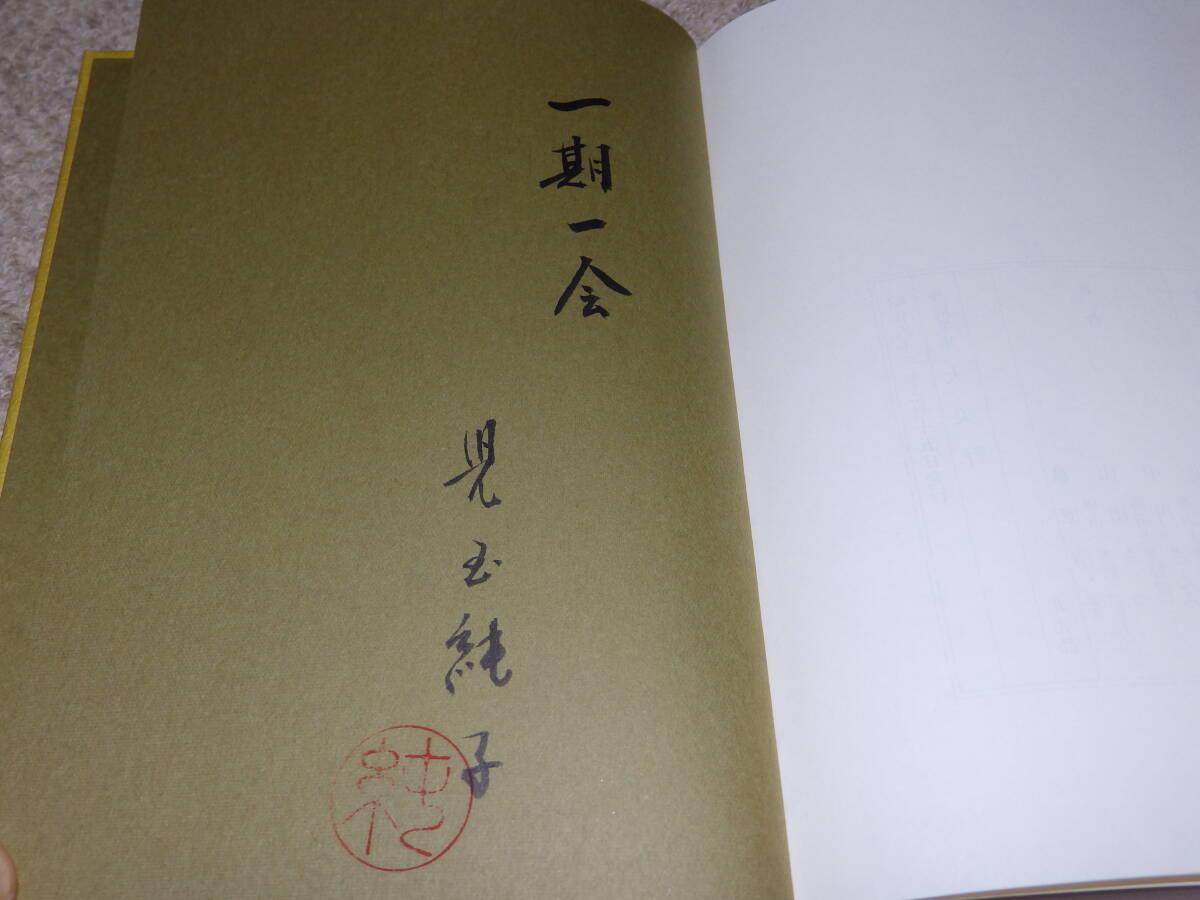 一期一会
児玉純子
純